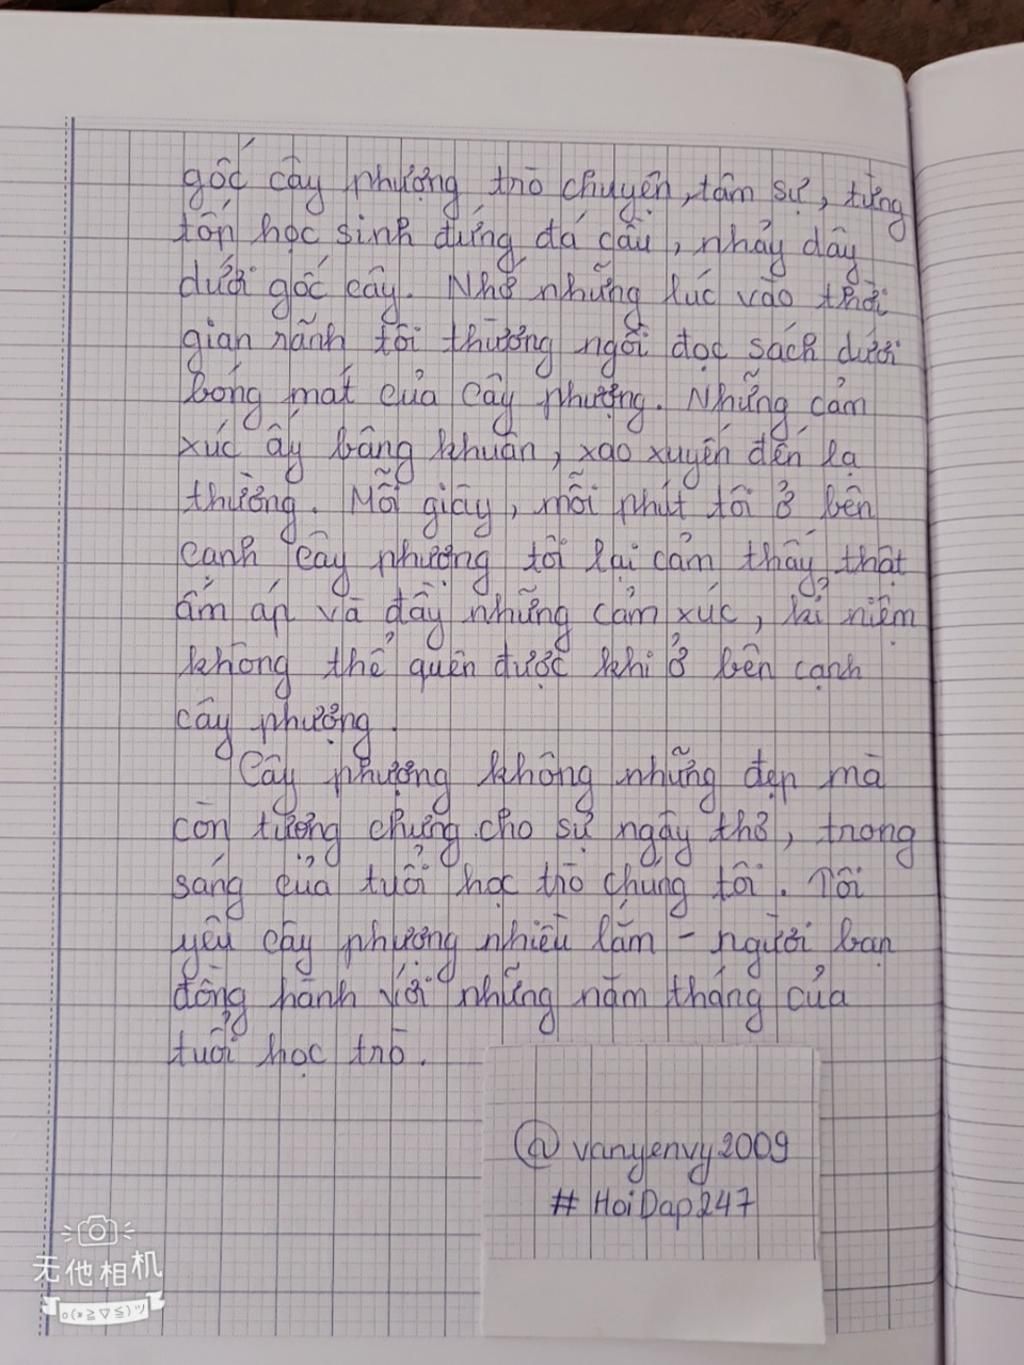 gốc cây phượng trò chuyện, tâm sự, từng
tốp học sinh đứng đá cầu, nhảy dây
dưới gốc cây. Nhớ những lúc vào thời
gian rãnh tôi thường ngồi đọc sách dưới
bóng mát của cây phượng. Những cảm
xúc ấy bâng khuân, xao xuyến đến lạ
thường. Mỗi giây, mỗi phút tôi ở bên
canh cây phượng tôi lại cảm thấy thật
ấm áp và đầy những cảm xúc, kỉ niệm
không thể quên được khi ở bên cạnh
cây phượng.
Cây phượng không những đẹp mà
còn tượng chưng cho sự ngây thơ, trong
sáng của tuổi học trò chúng tôi. Tôi
yêu cây phượng nhiều lắm - người bạn
đồng hành với những năm tháng của
tuổi học trò.
@vanyenvy2009
#HoiDap247
无他相机
o(*≧▽≦)ツ